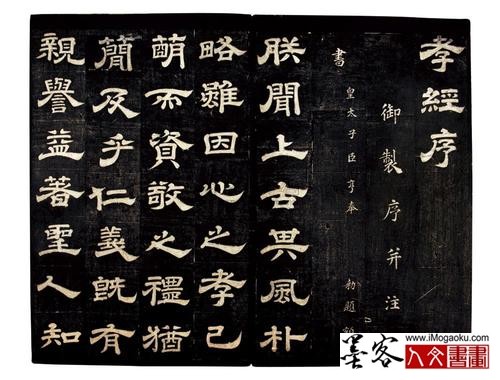 孝經序
御製序并注
書 皇太子臣亨奉 勅題
朕聞上古其風朴
略雖因心之孝已
萌而資敬之禮猶
簡及乎仁義既有
親譽益著聖人知
墨客
www.iMogaoku.com
人文書畫